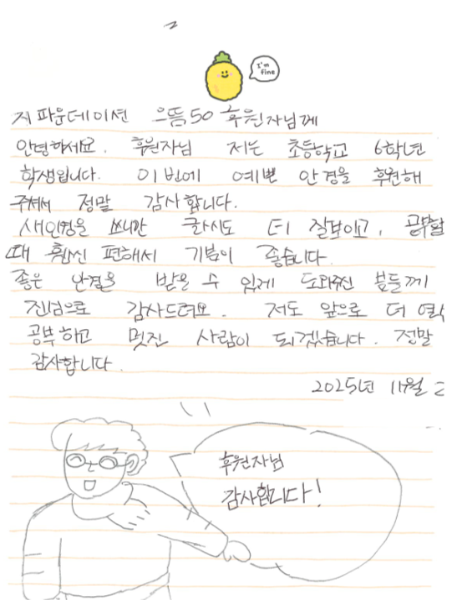 I'm fine
지파운데이션 으뜸50 후원자님께
안녕하세요. 후원자님 저는 초등학교 6학년
학생입니다. 이번에 예쁜 안경을 후원해
주셔서 정말 감사합니다.
새안경을 쓰니깐 글씨도 더 잘보이고, 공부할
때 훨씬 편해서 기분이 좋습니다.
좋은 안경을 받을 수 있게 도와주신 분들께
진심으로 감사드려요. 저도 앞으로 더 열심
공부하고 멋진 사람이 되겠습니다. 정말
감사합니다.
2025년 11월 2
후원자님
감사합니다!